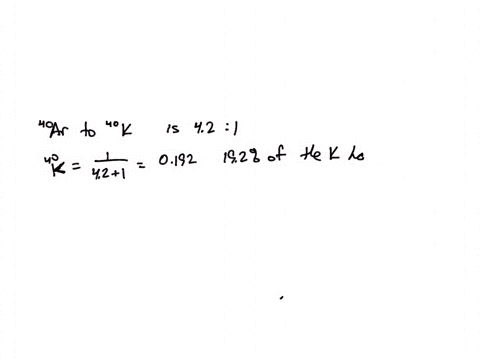 ⁴⁰Ar to ⁴⁰K is 4.2 : 1
⁴⁰K = 1/(4.2+1) = 0.192 19.2% of the K is